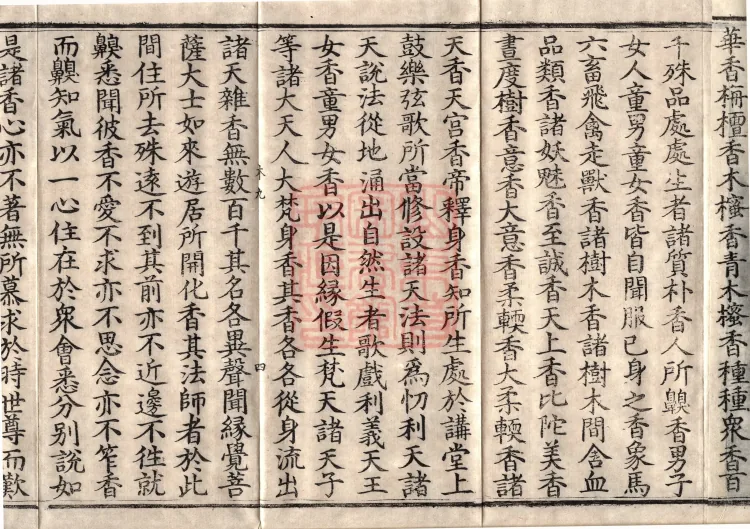 華香栴檀香木櫁香青木櫁香種種衆香百
千殊品處處生者諸質朴香人所齅香男子
女人童男童女香皆自聞服已身之香象馬
六畜飛禽走獸香諸樹木香諸樹木間含血
品類香諸妖魅香至誠香天上香比陀美香
晝度樹香意香大意香柔輭香大柔輭香諸
天香天宮香帝釋身香知所生處於講堂上
鼓樂弦歌所當修設諸天法則為忉利天諸
天說法從地涌出自然生者歌戲利義天王
女香童男女香以是因緣假生梵天諸天子
等諸大天人大梵身香其香各各從身流出
末九
四
諸天雜香無數百千其名各異聲聞緣覺菩
薩大士如來遊居所開化香其法師者於此
間住所去殊遠不到其前亦不近邊不徃就
齅悉聞彼香不愛不求亦不思念亦不笮香
而齅知氣以一心住在於衆會悉分別說如
是諸香心亦不著無所慕求於時世尊而歎